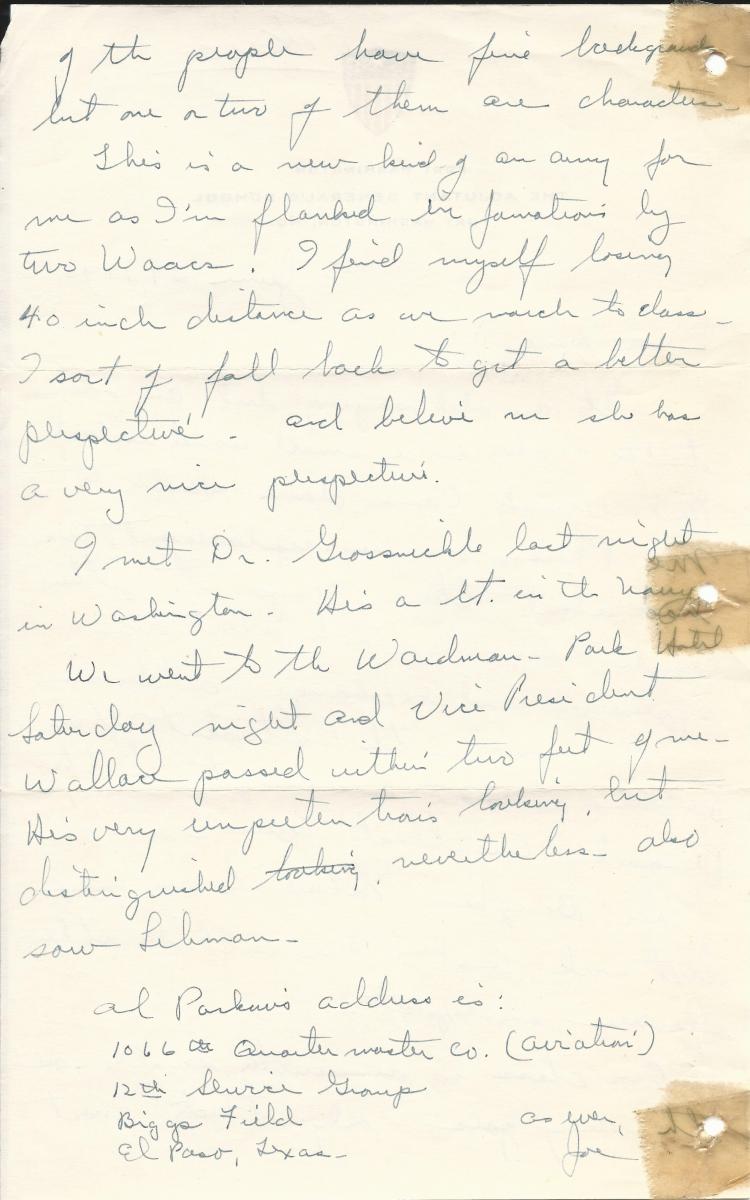 of the people have fine background
but one or two of them are characters.
This is a new kind of an army for
me as I'm flanked in formations by
two Waacs. I find myself losing
40 inch distance as we march to class -
I sort of fall back to get a better
perspective - and believe me she has
a very nice perspective.
I met Dr. Grossnickle last night
in Washington - He's a Lt. in the Navy
We went to the Wardman-Park Hotel
Saturday night and Vice President
Wallace passed within two feet of me -
He's very unpretentious looking, but
distinguished looking, nevertheless - also
saw Lehman -
Al address is:
1066 th Quartermaster Co. (Aviation)
12th Service Group
Biggs Field
El Paso, Texas -
as ever,
Joe